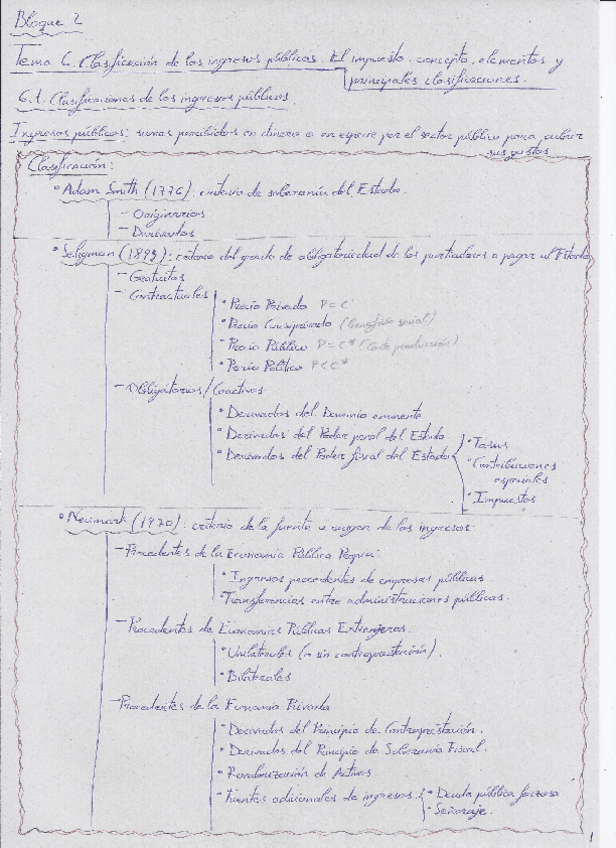 Bloque 2
Tema 6. Clasificación de los ingresos públicos. El impuesto: concepto, elementos y
principales clasificaciones.
6.1. Clasificaciones de los ingresos públicos.
Ingresos públicos: sumas percibidas en dinero o en especie por el sector público para cubrir
sus gastos
Clasificación:
• Adam Smith (1776): criterio de soberanía del Estado.
- Originarios
- Derivados
• Seligman (1895): criterio del grado de obligatoriedad de los particulares a pagar al Estado
- Gratuitos
- Contractuales
• Precio Privado P = C'
• Precio Cuasiprivado (beneficio social)
• Precio Público P = C* (Coste producción)
• Precio Político P < C*
- Obligatorios / Coactivos
• Derivados del Dominio eminente
• Derivados del Poder penal del Estado
• Derivados del Poder fiscal del Estado
• Tasas
• Contribuciones
especiales
• Impuestos
• Neumark (1970): criterio de la fuente u origen de los ingresos:
- Procedentes de la Economía Pública
• Ingresos procedentes de empresas públicas
• Transferencias entre administraciones públicas.
- Procedentes de Economías Públicas Extranjeras.
• Unilaterales (o sin contraprestación).
• Bilaterales
- Procedentes de la Economía Privada
• Derivados del Principio de Contraprestación.
• Derivados del Principio de Soberanía Fiscal.
• de Activos
• Fuentes adicionales de ingresos:
• Deuda pública forzosa
• Señoreaje.
1